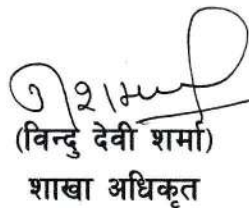 (विन्दु देवी शर्मा)
शाखा अधिकृत